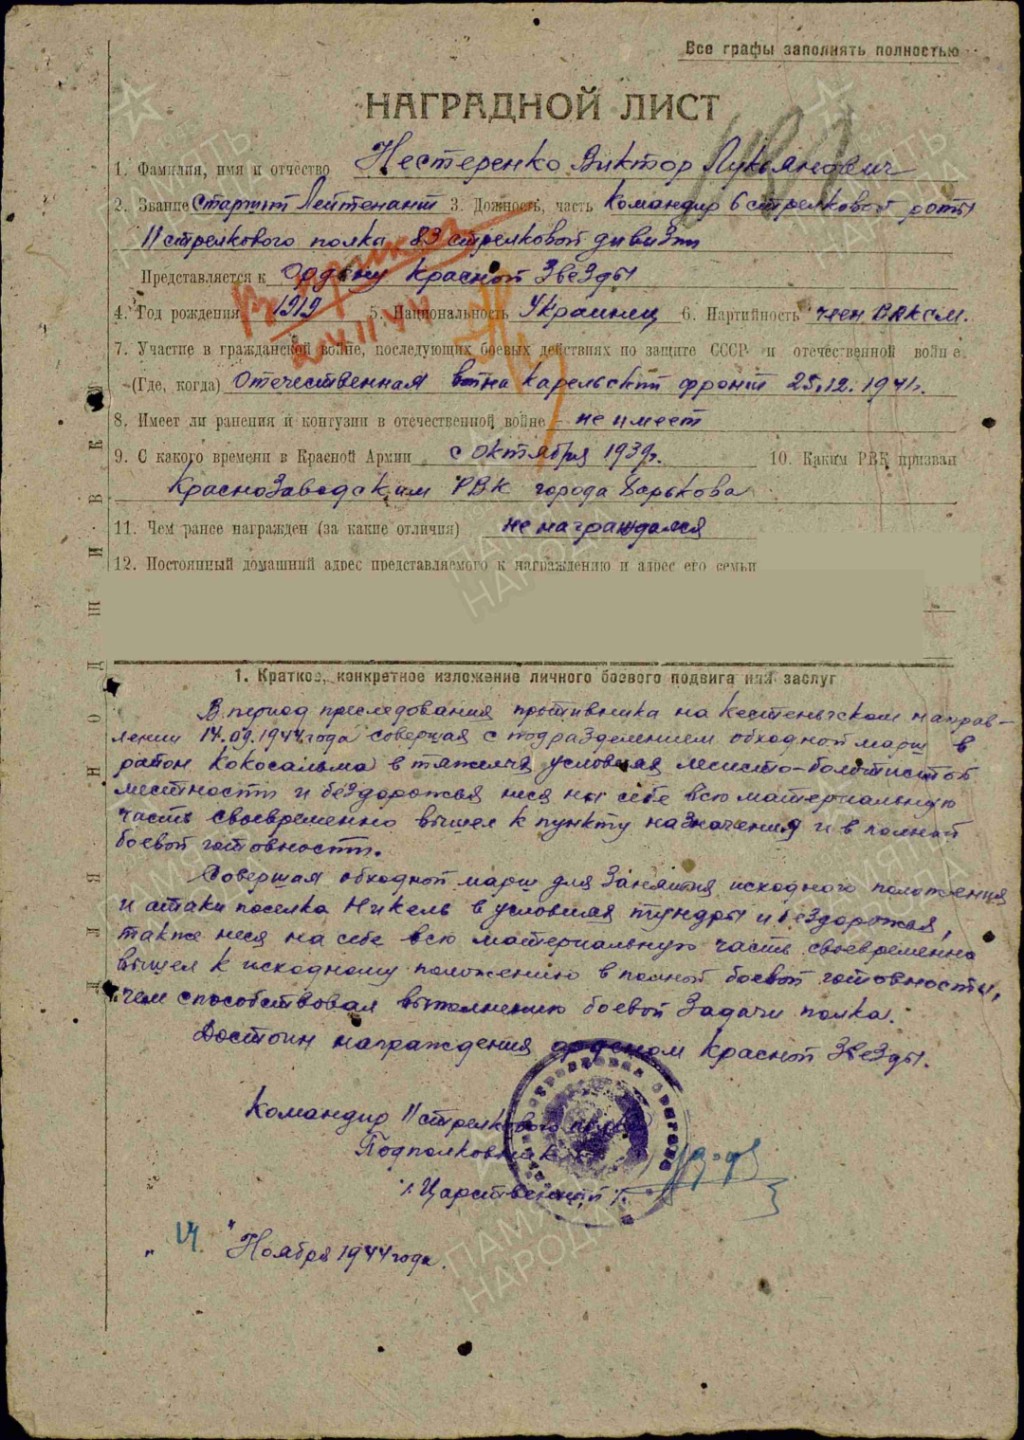 Все графы заполнять полностью
НАГРАДНОЙ ЛИСТ
1. Фамилия, имя и отчество Нестеренко Виктор Лукьянович
2. Звание Старший Лейтенант 3. Должность, часть Командир 6 стрелковой роты
11 стрелкового полка 83 стрелковой дивизии
Представляется к Ордену Красной Звезды
4. Год рождения 1919 5. Национальность Украинец 6. Партийность член ВЛКСМ.
7. Участие в гражданской войне, последующих боевых действиях по защите СССР и отечественной войне
(Где, когда) Отечественная война Карельский фронт 25.12.1941г.
8. Имеет ли ранения и контузии в отечественной войне не имеет
9. С какого времени в Красной Армии с октября 1939г. 10. Каким РВК призван
Краснозаводским РВК города Харькова
11. Чем ранее награжден (за какие отличия) не награждался
12. Постоянный домашний адрес представляемого к награждению и адрес его семьи
ДЛЯ ПОДШИВКИ
1. Краткое, конкретное изложение личного боевого подвига или заслуг
В период преследования противника на Кестеньгском направ-
лении 14.09.1944 года совершая с подразделением обходной марш в
район Кокосальма в тяжелых условиях лесисто-болотистой
местности и бездорожья неся на себе всю материальную
часть своевременно вышел к пункту назначения и в полной
боевой готовности.
Совершая обходной марш для занятия исходного положения
и атаки поселка Никель в условиях тундры и бездорожья,
также неся на себе всю материальную часть своевременно
вышел к исходному положению в полной боевой готовности,
чем способствовал выполнению боевой задачи полка.
Достоин награждения орденом Красной Звезды.
Командир 11 стрелкового полка
Подполковник
/Царственный/.
"14" Ноября 1944 года.
ПАМЯТЬ НАРОДА